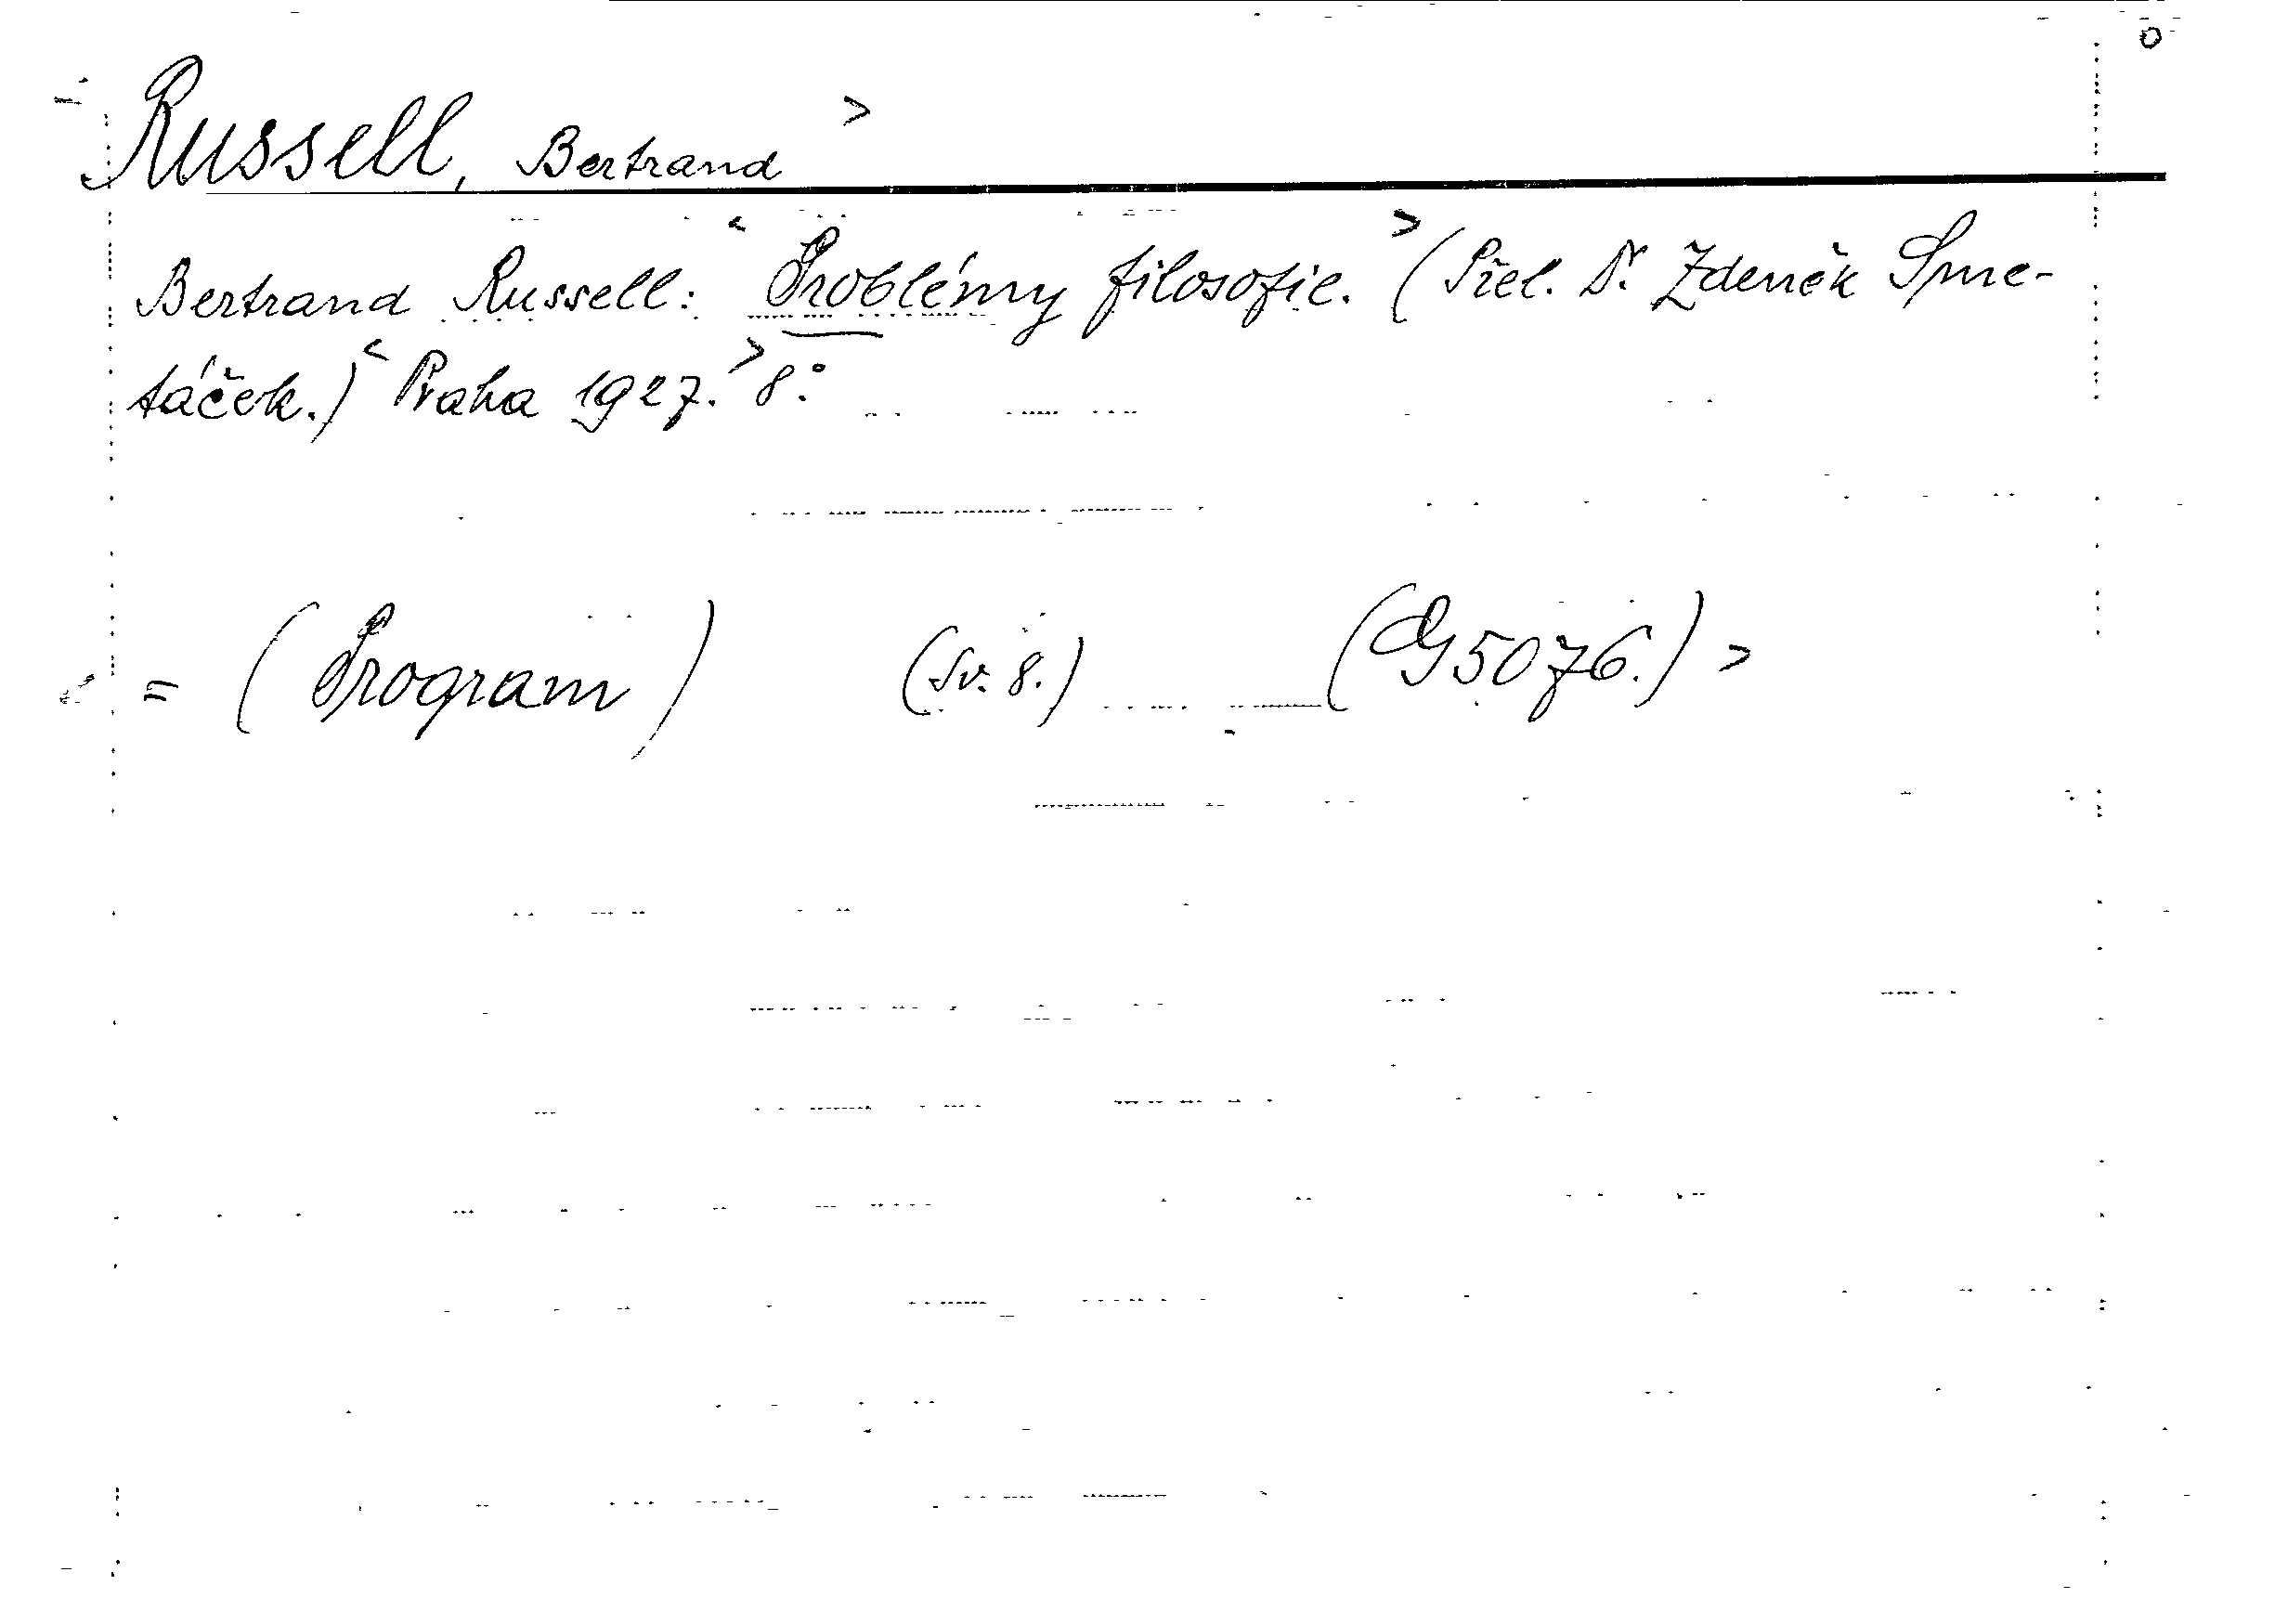 Russell, Bertrand >
Bertrand Russell: < Problémy filosofie. > (Přel. Dr. Zdeněk Sme-
táček.) < Praha 1927. > 8°.
< = (Program) (Sv. 8.) (G 5076.) >